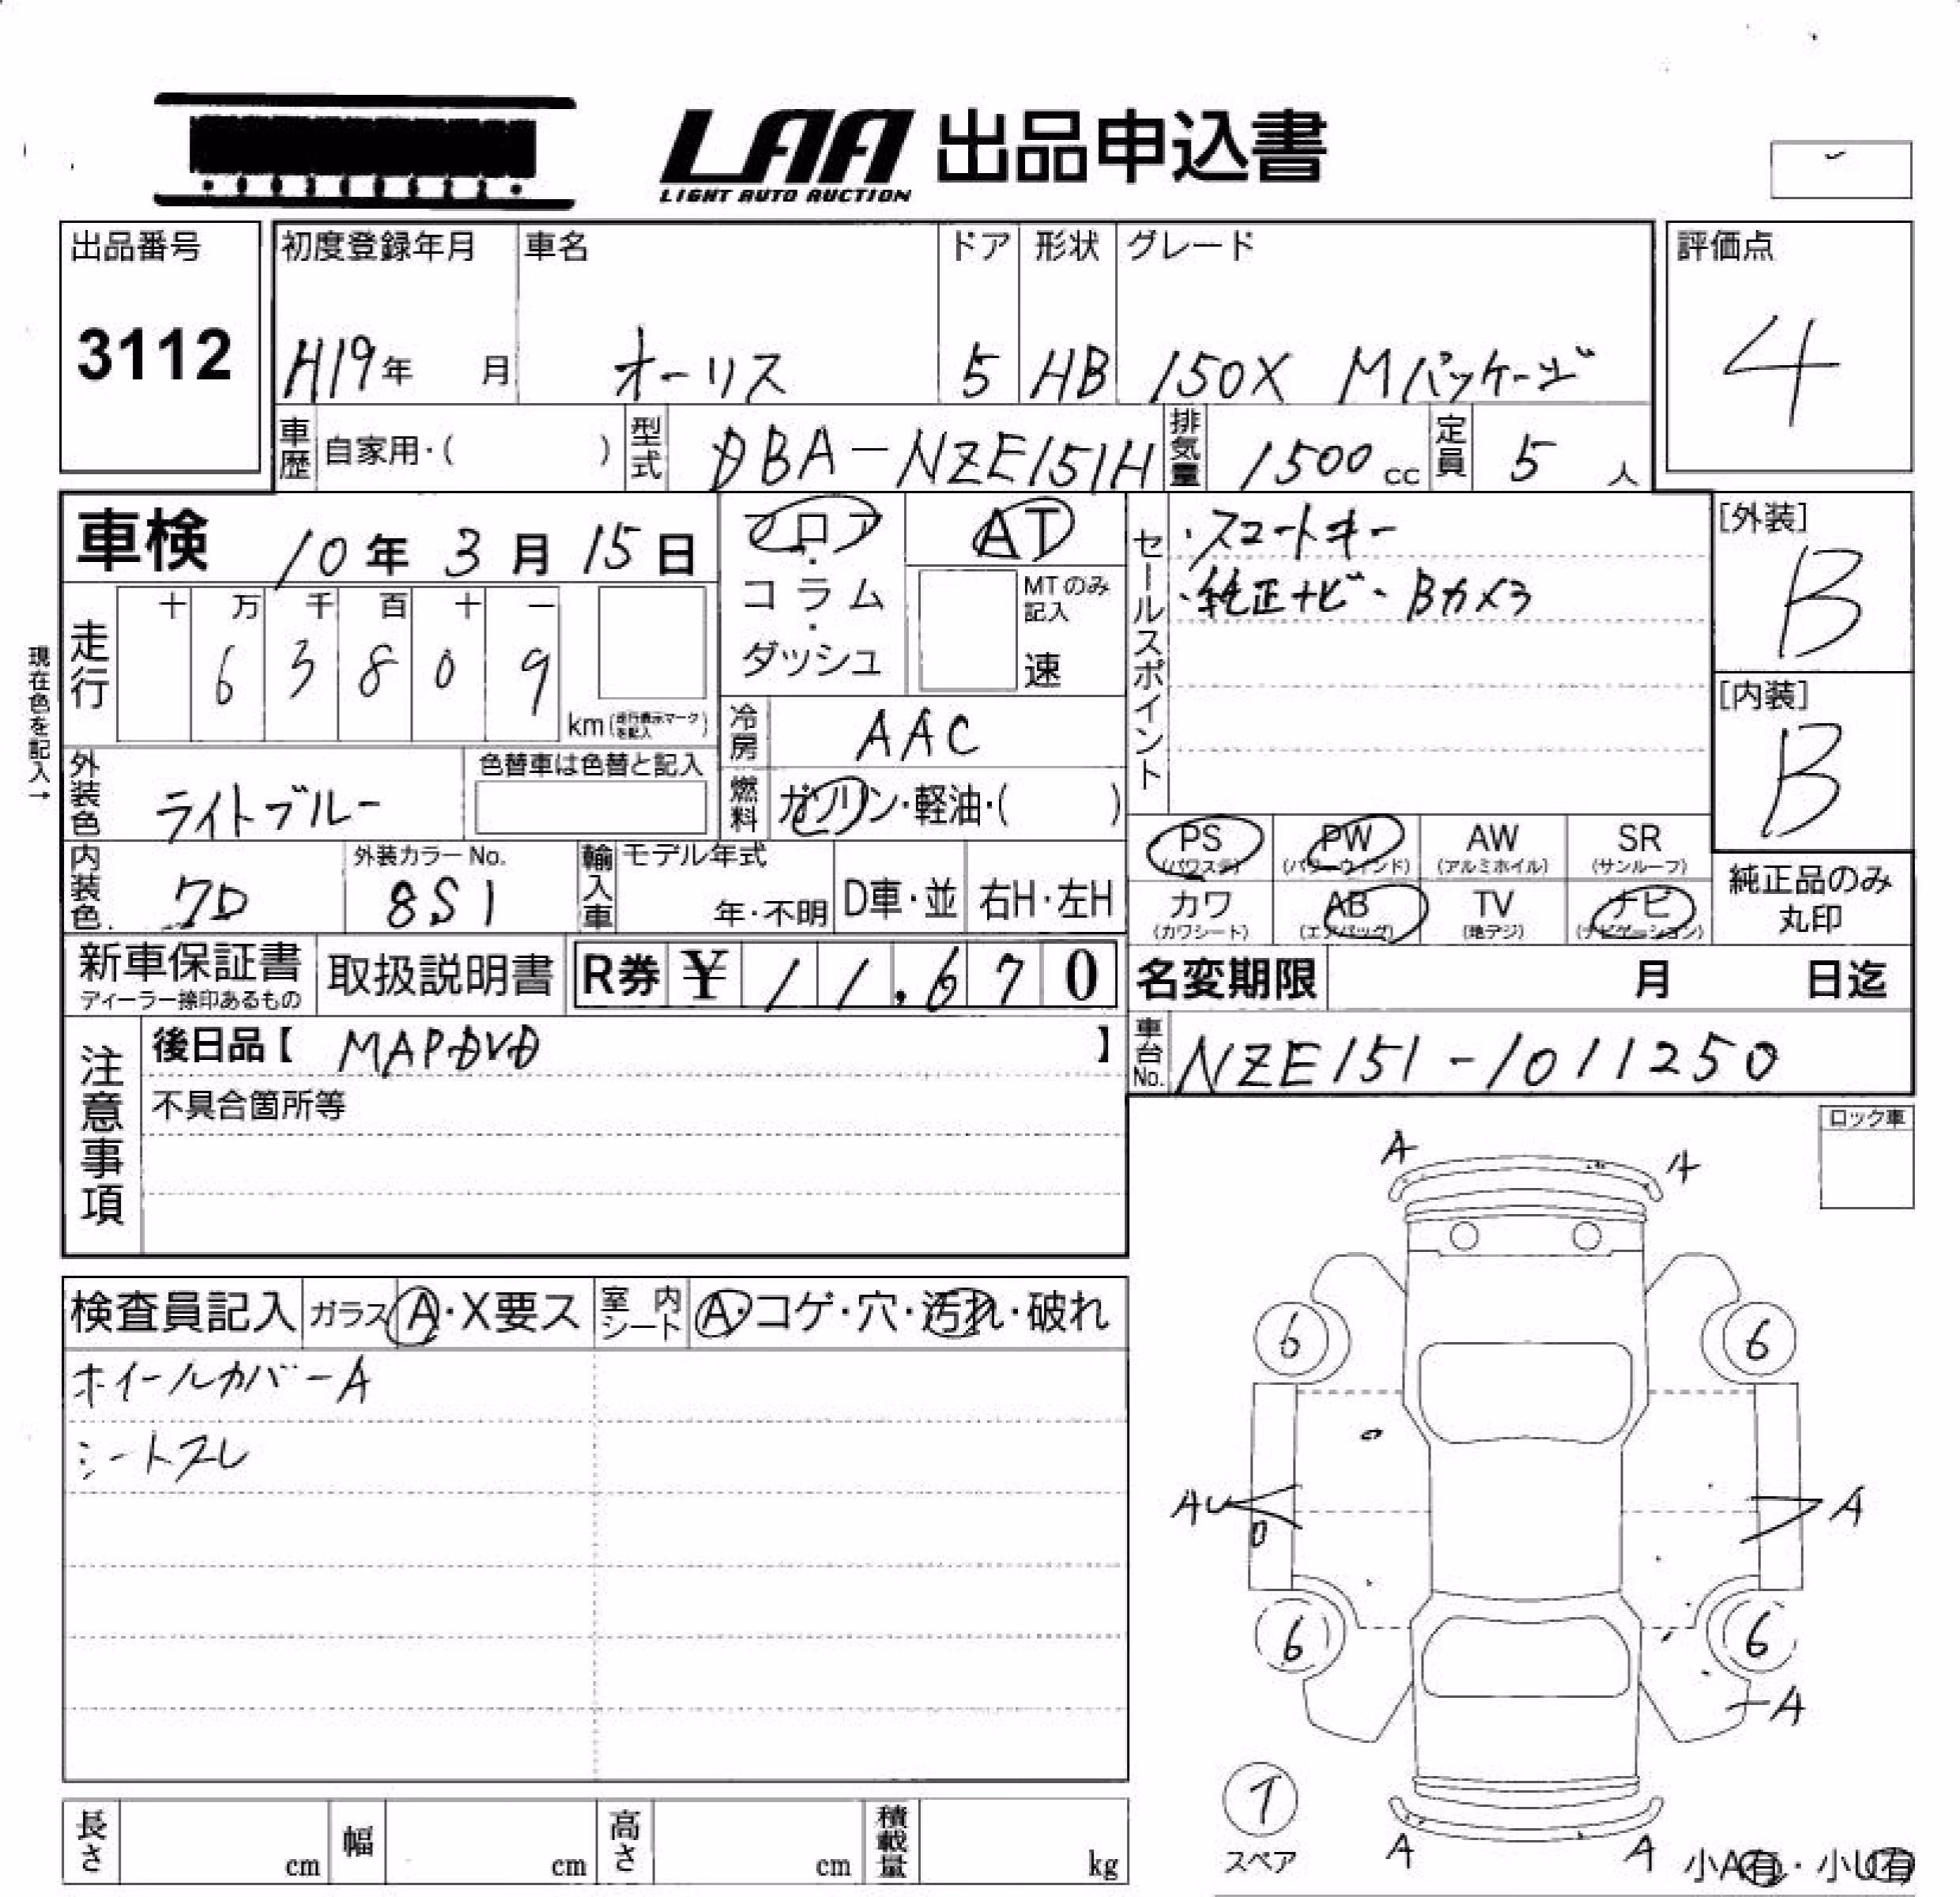 LAA 出品申込書
LIGHT AUTO AUCTION
出品番号
3112
初度登録年月 車名 ドア 形状 グレード
H19年 月 オーリス 5 HB 150X Mパッケージ
評価点
4
車歴 自家用・( ) 型式 DBA-NZE151H 排気量 1500cc 定員 5人
車検 10年3月15日
フロア・コラム・ダッシュ
AT
MTのみ記入
速
セールスポイント
・スマートキー
・純正ナビ・Bカメラ
[外装]
B
[内装]
B
現在色を記入→
走行 十 万 千 百 十 一
6 3 8 0 9
km(走行表示マークを記入)
冷房 AAC
外装色 ライトブルー
色替車は色替と記入
燃料 ガソリン・軽油・( )
内装色 7D
外装カラーNo.
8S1
輸入車 モデル年式
年・不明 D車・並 右H・左H
PS (パワステ) PW (パワーウィンド) AW (アルミホイル) SR (サンルーフ)
カワ (カワシート) AB (エアバッグ) TV (地デジ) ナビ (ナビゲーション)
純正品のみ
丸印
新車保証書
ディーラー捺印あるもの
取扱説明書 R券 ¥ 11,670
名変期限 月 日迄
注意事項
後日品【 MAPDVD 】
不具合箇所等
車台No. NZE151-1011250
ロック車
検査員記入 ガラス A・X要ス 室内シート A・コゲ・穴・汚れ・破れ
ホイールカバーA
シートスレ
A A
6 6
AU A
6 6
A
T
スペア
A A
小A有・小U有
長さ cm 幅 cm 高さ cm 積載量 kg